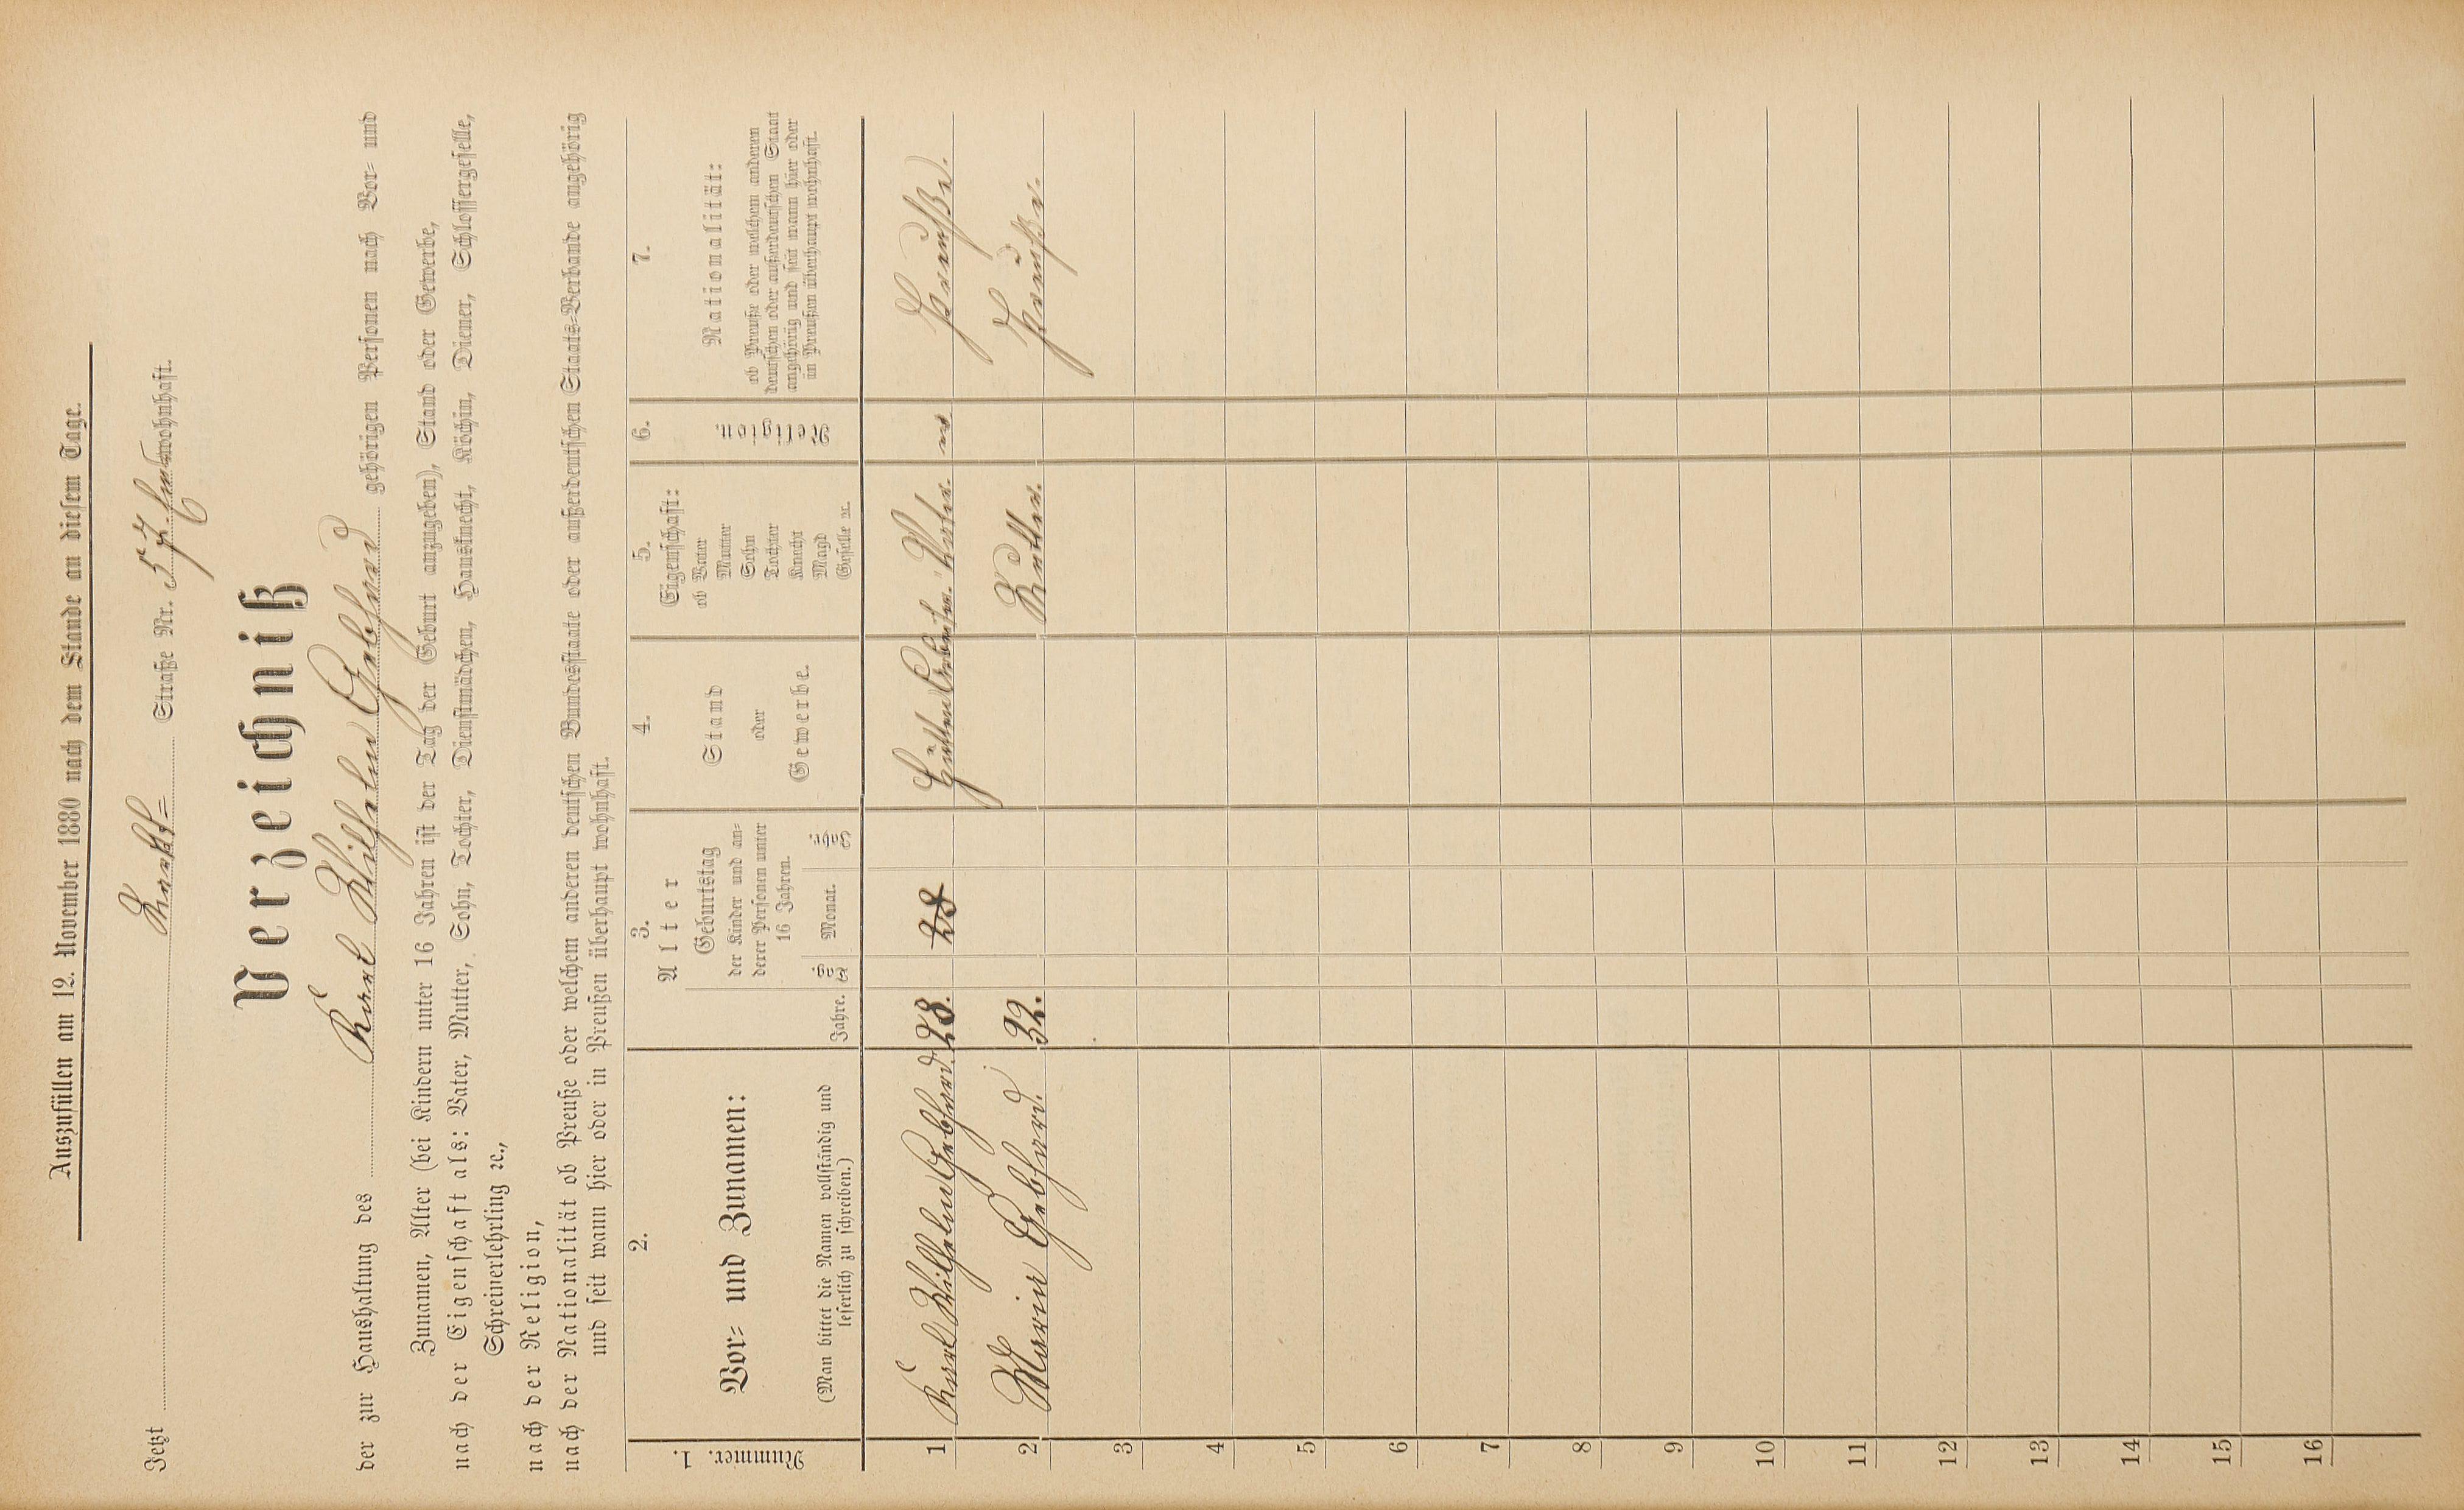 Auszufüllen am 12. November 1880 nach dem Stande an diesem Tage.
Jetzt Straße Nr. 57. wohnhaft.
Verzeichniß
der zur Haushaltung des Karl Wilhelm Gebhard gehörigen Personen nach Vor- und
Zunamen, Alter (bei Kindern unter 16 Jahren ist der Tag der Geburt anzugeben), Stand oder Gewerbe,
nach der Eigenschaft als: Vater, Mutter, Sohn, Tochter, Dienstmädchen, Hausknecht, Köchin, Diener, Schlossergeselle,
Schreinerlehrling ꝛc.,
nach der Religion,
nach der Nationalität ob Preuße oder welchem anderen deutschen Bundesstaate oder außerdeutschen Staats-Verbande angehörig
und seit wann hier oder in Preußen überhaupt wohnhaft.
Nummer. 1.
2.
Vor- und Zunamen:
(Man bittet die Namen vollständig und
leserlich zu schreiben.)
3.
Alter
Jahre.
Geburtstag
der Kinder und an-
derer Personen unter
16 Jahren.
Tag
Monat.
Jahr
4.
Stand
oder
Gewerbe.
5.
Eigenschaft:
ob Vater
Mutter
Sohn
Tochter
Knecht
Magd
Geselle ꝛc.
6.
Religion.
7.
Nationalität:
ob Preuße oder welchem anderen
deutschen oder außerdeutschen Staat
angehörig und seit wann hier oder
in Preußen überhaupt wohnhaft.
1 Karl Wilhelm Gebhard. 28. 28 Vater. Preuße.
2 Maria Gebhard. 32. Mutter. Preuße.
3
4
5
6
7
8
9
10
11
12
13
14
15
16